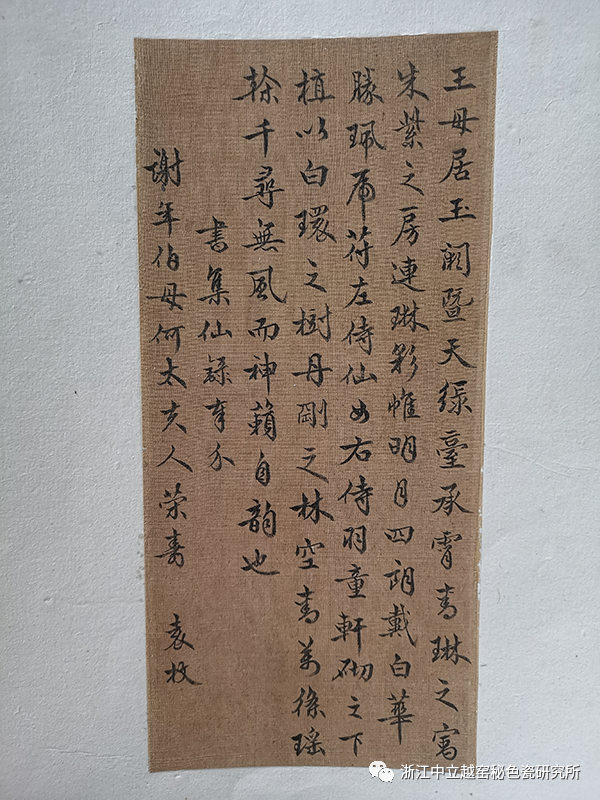 王母居玉闕暨天緑臺承霄青琳之寓
朱紫之房連琳彩帷明月四朗戴白華
勝珮虎符左侍仙女右侍羽童軒砌之下
植以白環之樹丹剛之林空青萬條瑶
榦千尋無風而神籟自韵也
書集仙錄奉介
謝年伯母何太夫人荣壽 袁枚
浙江中立越窑秘色瓷研究所